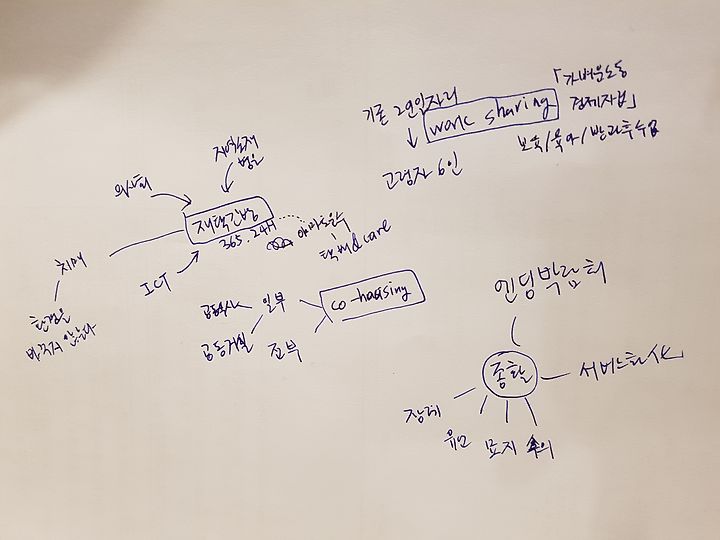 기존 2인일자리
work sharing
「가벼운노동
경제자보」
보육/육아/방과후수업
고령자 6인
지역소재
병원
의사회
재택간병
365.24H
치매
환경을
바꾸지 않는다
ICT
택배&care
co-housing
일부
전부
공동식사
공동거실
엔딩박람회
종활
서비스화
장례
유언
묘지
수의